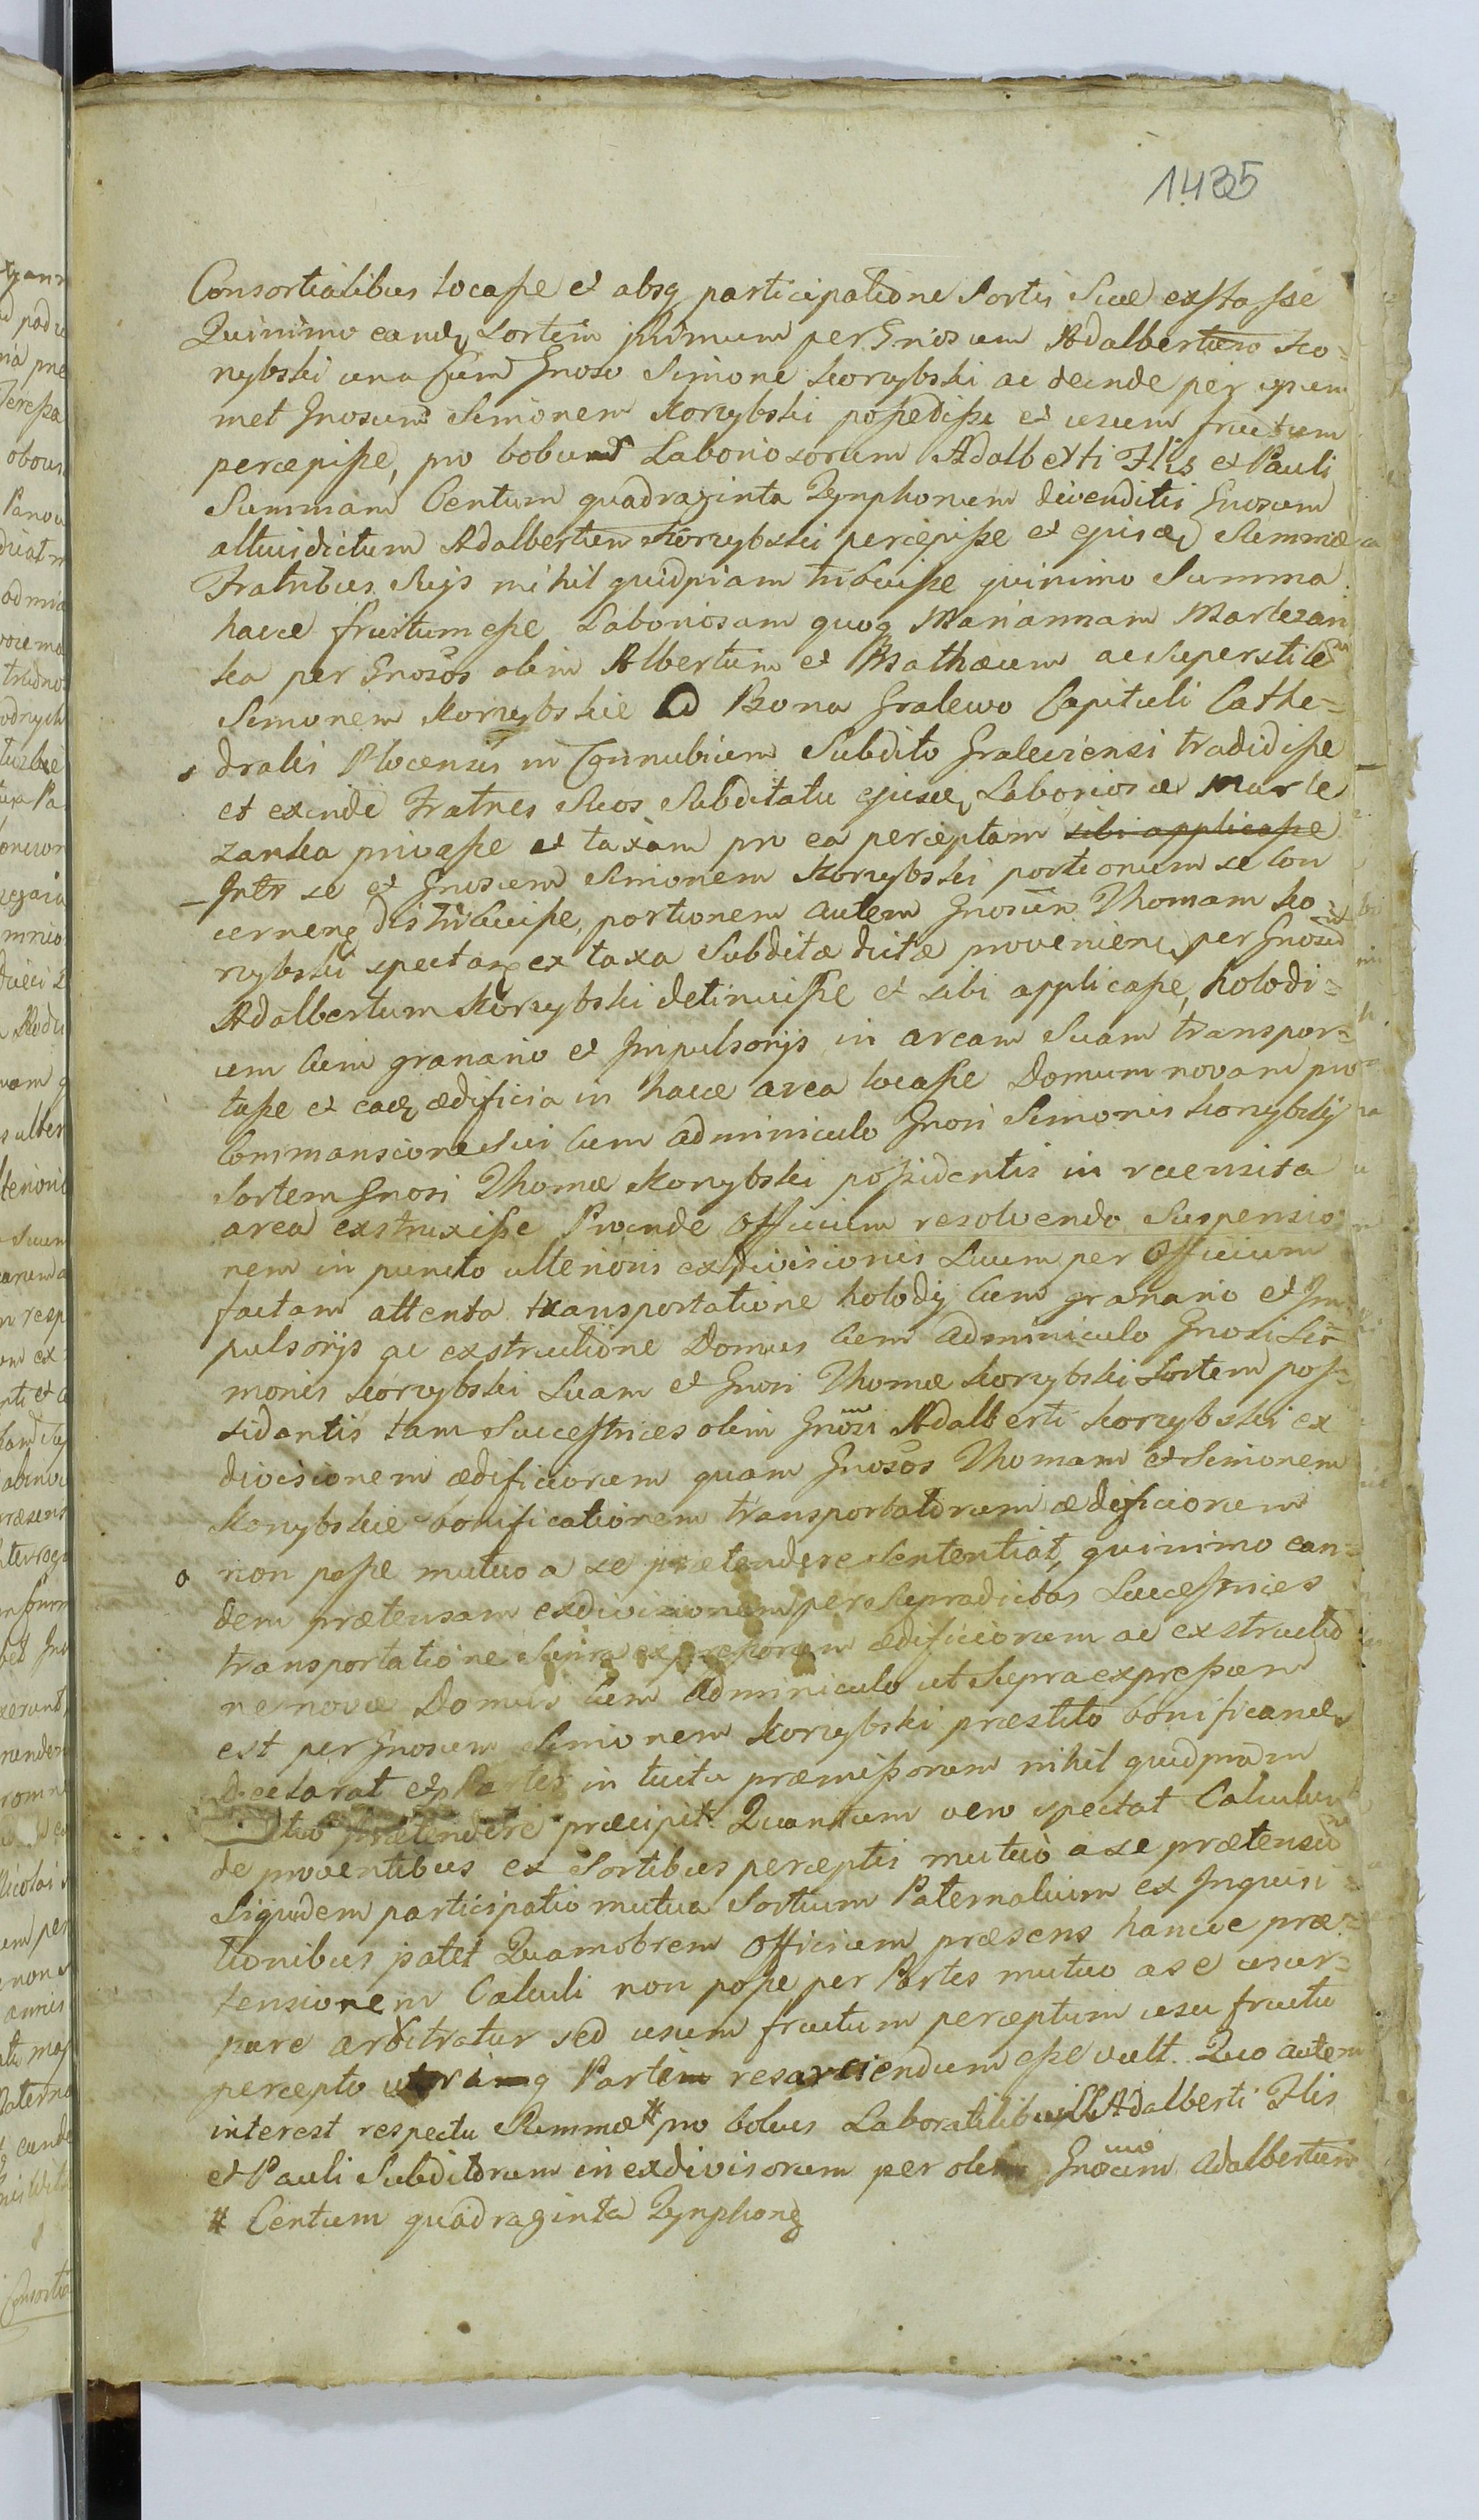 1435
Consortialibus locasse et absq participatione Sortis Suæ exstasse
Quinimo eandē Sortem primum per Gnosum Adalbertum Ko=
rzybski una cum Gnoso Simone Korzybski ac deinde per ipsum
met Gnosum Simonem Korzybski possedisse et usum fructum
percepisse, pro bobus Laboriosorum Adalberti Flis et Pauli
Summam Centum quadraginta Tynphonum divenditis Gnosum
altius dictum Adalbertum Korzybski percepisse et ejusdē Summæ
Fratribus Suis nihil quidpiam tribuisse quinimo Summa
hacce fruitum esse Laboriosam quoq Mariannam Marlezan
ka per Gnosos olim Albertum et Mathæum ac Superstitem
Simonem Korzybskie ad Bona Gralewo Capituli Cathe=
dralis Plocensis in Connubium Subdito Graleviensi tradidisse
et exinde Fratres Suos Subditatu ejusdē Laboriosæ Marle
zanka privasse et taxam pro ea perceptam sibi applicasse
Intr se et Gnosum Simonem Korzybski portionum se con
cernenē distribuisse, portionem autem Gnosum Thomam Ko=
rzybski spectanē ex taxa Subditæ dictæ provenienē per Gnosum
Adalbertum Korzybski detinuisse et sibi applicasse, holodi=
um cum granario et Impulsorijs in aream Suam transpor=
tasse et eadē ædificia in hacce area locasse Domum novam pro
Commansione Sui cum adminiculo Gnosi Simonis Korzybskij
Sortem Gnosi Thomæ Korzybski possidentis in recensita
area exstruxisse Proinde Officium resolvendo Suspensio
nem in puncto ulterioris exdivisionis Suum per Officium
factam attenta transportatione holodij cum granario et Im
pulsorijs ac exstructione Domus cum adminiculo Gnosi Si
monis Korzybski Suam et Gnosi Thomæ Korzybski Sortem pos=
sidentis tam Successtrices olim Gnosi Adalberti Korzybski ex
divisionem ædificiorum quam Gnosos Thomam et Simonem
Korzybskie bonificationem transportatorum ædificiorum
non posse mutuo a se prætendere Sententiat, quinimo ean=
dem prætensam exdivisionem per Supradictas Successtrices
transportatione Supra expressorum ædificiorum ac exstructio
ne novæ Domus cum adminiculo ut Supra expressum
est per Gnosum Simonem Korzybski præstito bonificandē
declarat et Partes in tuitu præmissorum nihil quidpiam
prætendere præcipit Quantum vero spectat Calculum
de proventibus ex Sortibus perceptis mutuo a se prætensum
Siquidem participatio mutua Sortium Paternalium ex Inquisi=
tionibus patet Quamobrem Officium præsens hancce præ=
tensionem Calculi non posse per Partes mutuo a se usur=
pare arbitratur sed usum fructum perceptum usu fructu
percepto utrinq Partem resarciendum esse vult. Quo autem
interest respectu Summæ # pro bobus Laboratilibus Adalberti Flis
et Pauli Subditorum inexdivisorum per olim Gnosum Adalbertum
# Centum quadraginta Tynphonē